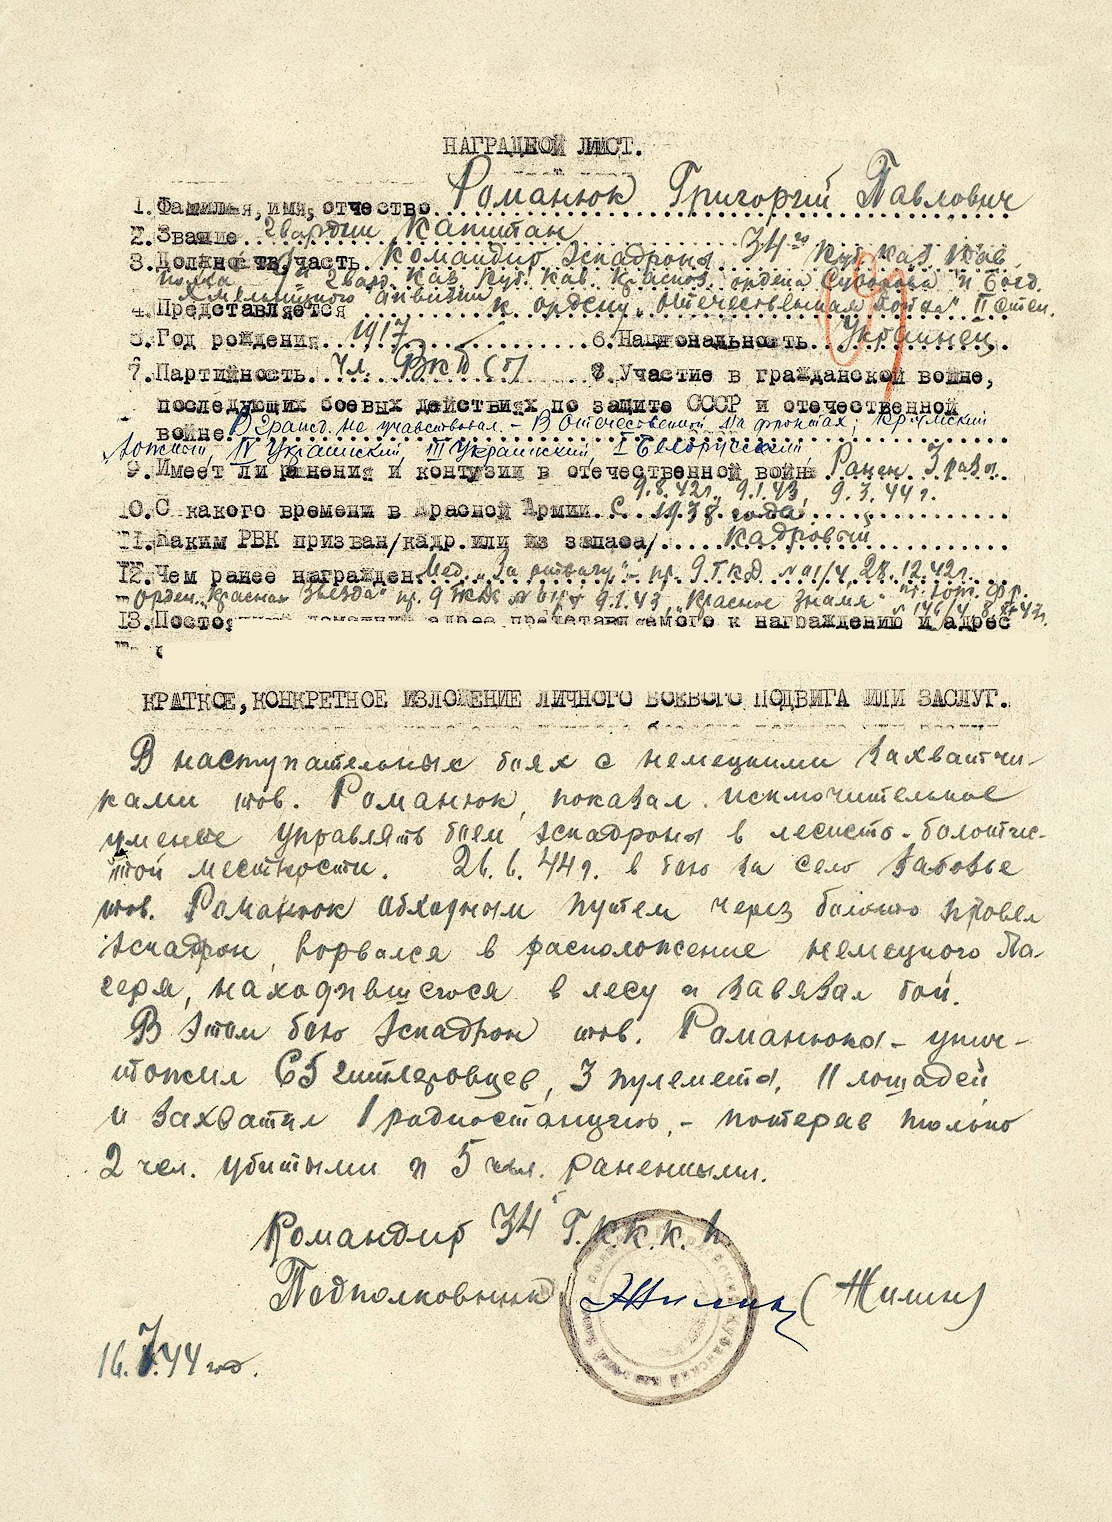 НАГРАДНОЙ ЛИСТ.
1. Фамилия, имя, отчество. Романюк Григорий Павлович
2. Звание гвардии Капитан
3. Должность, часть Командир Эскадрона 34го Куб. каз. кав.
полка 9 гвард. Каз. Куб. кав. Красноз. ордена Суворова и Богд.
Хмельницкого дивизии
4. Представляется к ордену „Отечественная Война" II степ.
5. Год рождения 1917 6. Национальность. Украинец
7. Партийность. Чл. ВКП(б) 8. Участие в гражданской войне,
последующих боевых действиях по защите СССР и отечественной
войне. В гражд. не участвовал. – В Отечественной на фронтах: Крымский
Южный, IV Украинский, III Украинский, I Белорусский
9. Имеет ли ранения и контузии в отечественной войне Ранен 3 раза.
9.8.42г., 9.1.43, 9.3.44г.
10. С какого времени в Красной Армии С 1938 года
11. Каким РВК призван/кадр. или из запаса/. Кадровый
12. Чем ранее награжден. Мед. „За отвагу" – пр. 9 ГКД №01/4 28.12.42г.
Орден „Красная Звезда" пр. 9 ГКД 9.1.43, „Красное Знамя" пр. Юж. фр.
№ 146/
13. Постоянный домашний адрес представляемого к награждению и адрес
КРАТКОЕ, КОНКРЕТНОЕ ИЗЛОЖЕНИЕ ЛИЧНОГО БОЕВОГО ПОДВИГА ИЛИ ЗАСЛУГ.
В наступательных боях с немецкими захватчи-
ками тов. Романюк, показал исключительное
уменье управлять боем эскадрона в лесисто-болотис-
той местности. 26.6.44г. в бою за село Забозье
тов. Романюк обходным путем через болото провел
эскадрон, ворвался в расположение немецкого ла-
геря, находившегося в лесу и завязал бой.
В этом бою эскадрон тов. Романюка – унич-
тожил 65 гитлеровцев, 3 пулемета, 11 лошадей
и захватил 1 радиостанцию, – потеряв только
2 чел. убитыми и 5 чел. ранеными.
Командир 34 Г.К.К.К.П.
Подполковник Жилин (Жилин)
16.7.44 год.